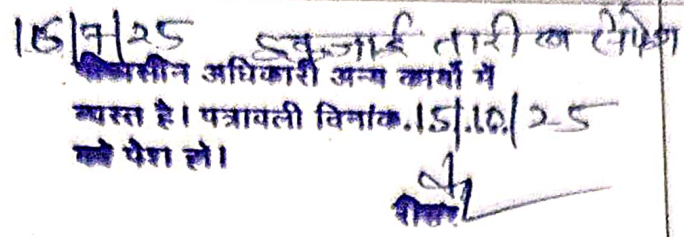 16/7/25 इकजाई तारीख पेश
पीठासीन अधिकारी अन्य कार्यो में
व्यस्त है। पत्रावली दिनांक.15/.10./25
को पेश हो।
रीडर